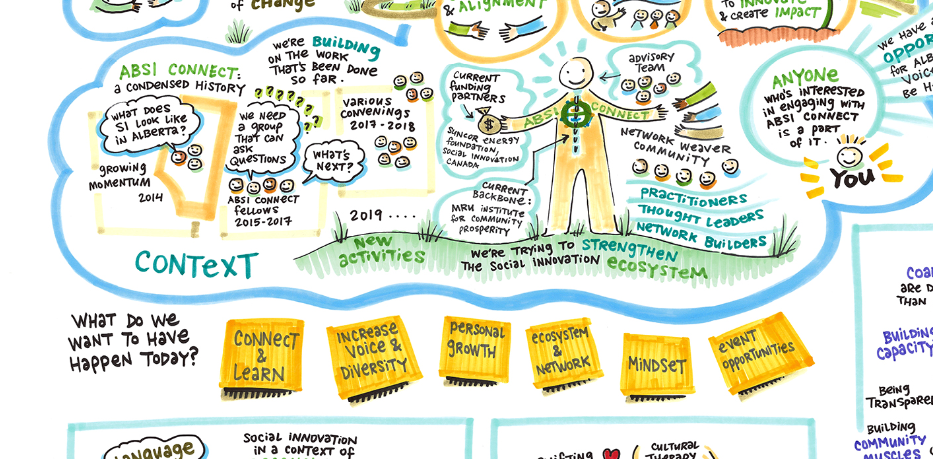 OF CHANGE
& ALIGNMENT
TO INNOVATE
& CREATE IMPACT
WE HAVE A
OPPOR
FOR ALB
VOICE
BE H
WE'RE BUILDING
ON THE WORK
THAT'S BEEN DONE
SO FAR.
ABSI CONNECT:
a CONDENSED HISTORY
WHAT DOES
SI LOOK LIKE
IN ALBERTA?
GROWING
MOMENTUM
2014
??????
??
WE NEED
a GROUP
THAT CAN
ASK
QUESTIONS
ABSI CONNECT
FELLOWS
2015-2017
WHAT'S
NEXT?
VARIOUS
CONVENINGS
2017-2018
2019 ....
CURRENT
FUNDING
PARTNERS
$
SUNCOR ENERGY
FOUNDATION,
SOCIAL INNOVATION
CANADA
ABSI CONNECT
CURRENT
BACKBONE:
MRU INSTITUTE
FOR COMMUNITY
PROSPERITY
ADVISORY
TEAM
NETWORK WEAVER
COMMUNITY
PRACTITIONERS
THOUGHT LEADERS
NETWORK BUILDERS
ANYONE
WHO'S INTERESTED
IN ENGAGING WITH
ABSI CONNECT
IS A PART
OF IT.
YOU
CONTEXT
NEW
ACTIVITIES
WE'RE TRYING TO STRENGTHEN
THE SOCIAL INNOVATION ECOSYSTEM
WHAT DO WE
WANT TO HAVE
HAPPEN TODAY?
CONNECT
&
LEARN
INCREASE
VOICE &
DIVERSITY
PERSONAL
GROWTH
ECOSYSTEM
&
NETWORK
MINDSET
EVENT
OPPORTUNITIES
COA
ARE D
THAN
BUILDING
CAPACITY
BEING
TRANSPARE
BUILDING
COMMUNITY
MUSCLES
LANGUAGE
SOCIAL INNOVATION
IN A CONTEXT OF
CULTURAL
THERAPY